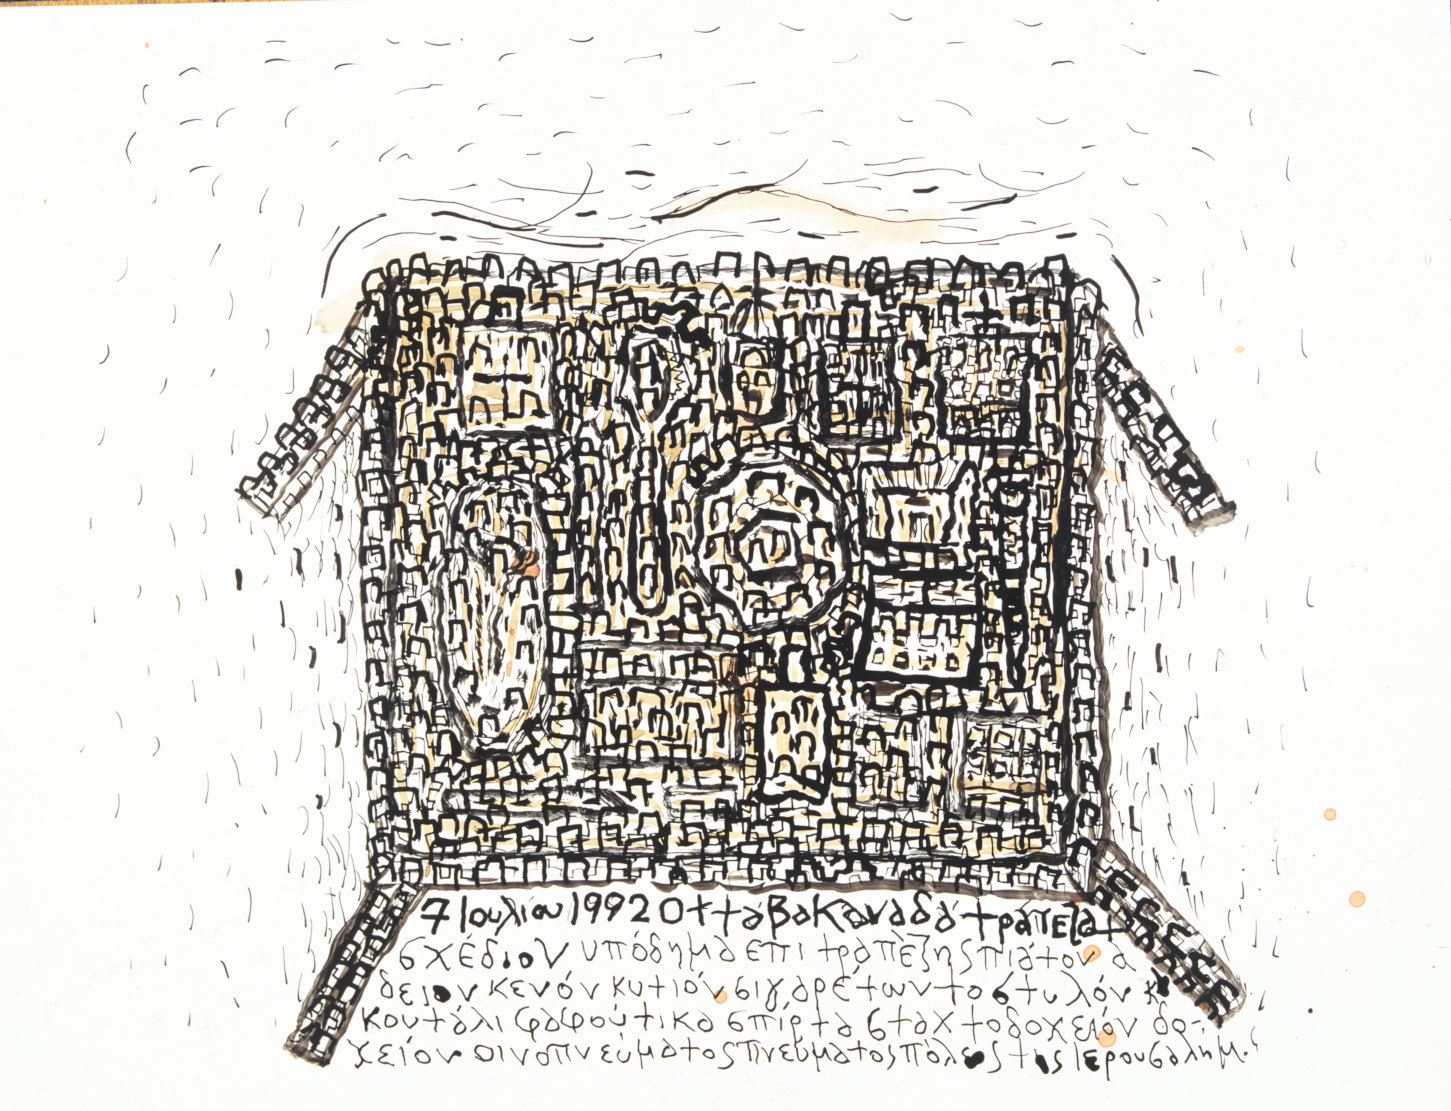 7 Ιουλίου 1992 Οττάβα Καναδά τράπεζα
σχέδιον υπόδημα επι τραπέζης πιάτον ά
δειον κενόν κυτιόν σιγαρέτων το στυλόν κ
κουτάλι φαφούτικα σπίρτα σταχτοδοχείόν δο-
χείον οινοπνεύματος πνεύματος πόλεος της Ιερουσαλήμ.